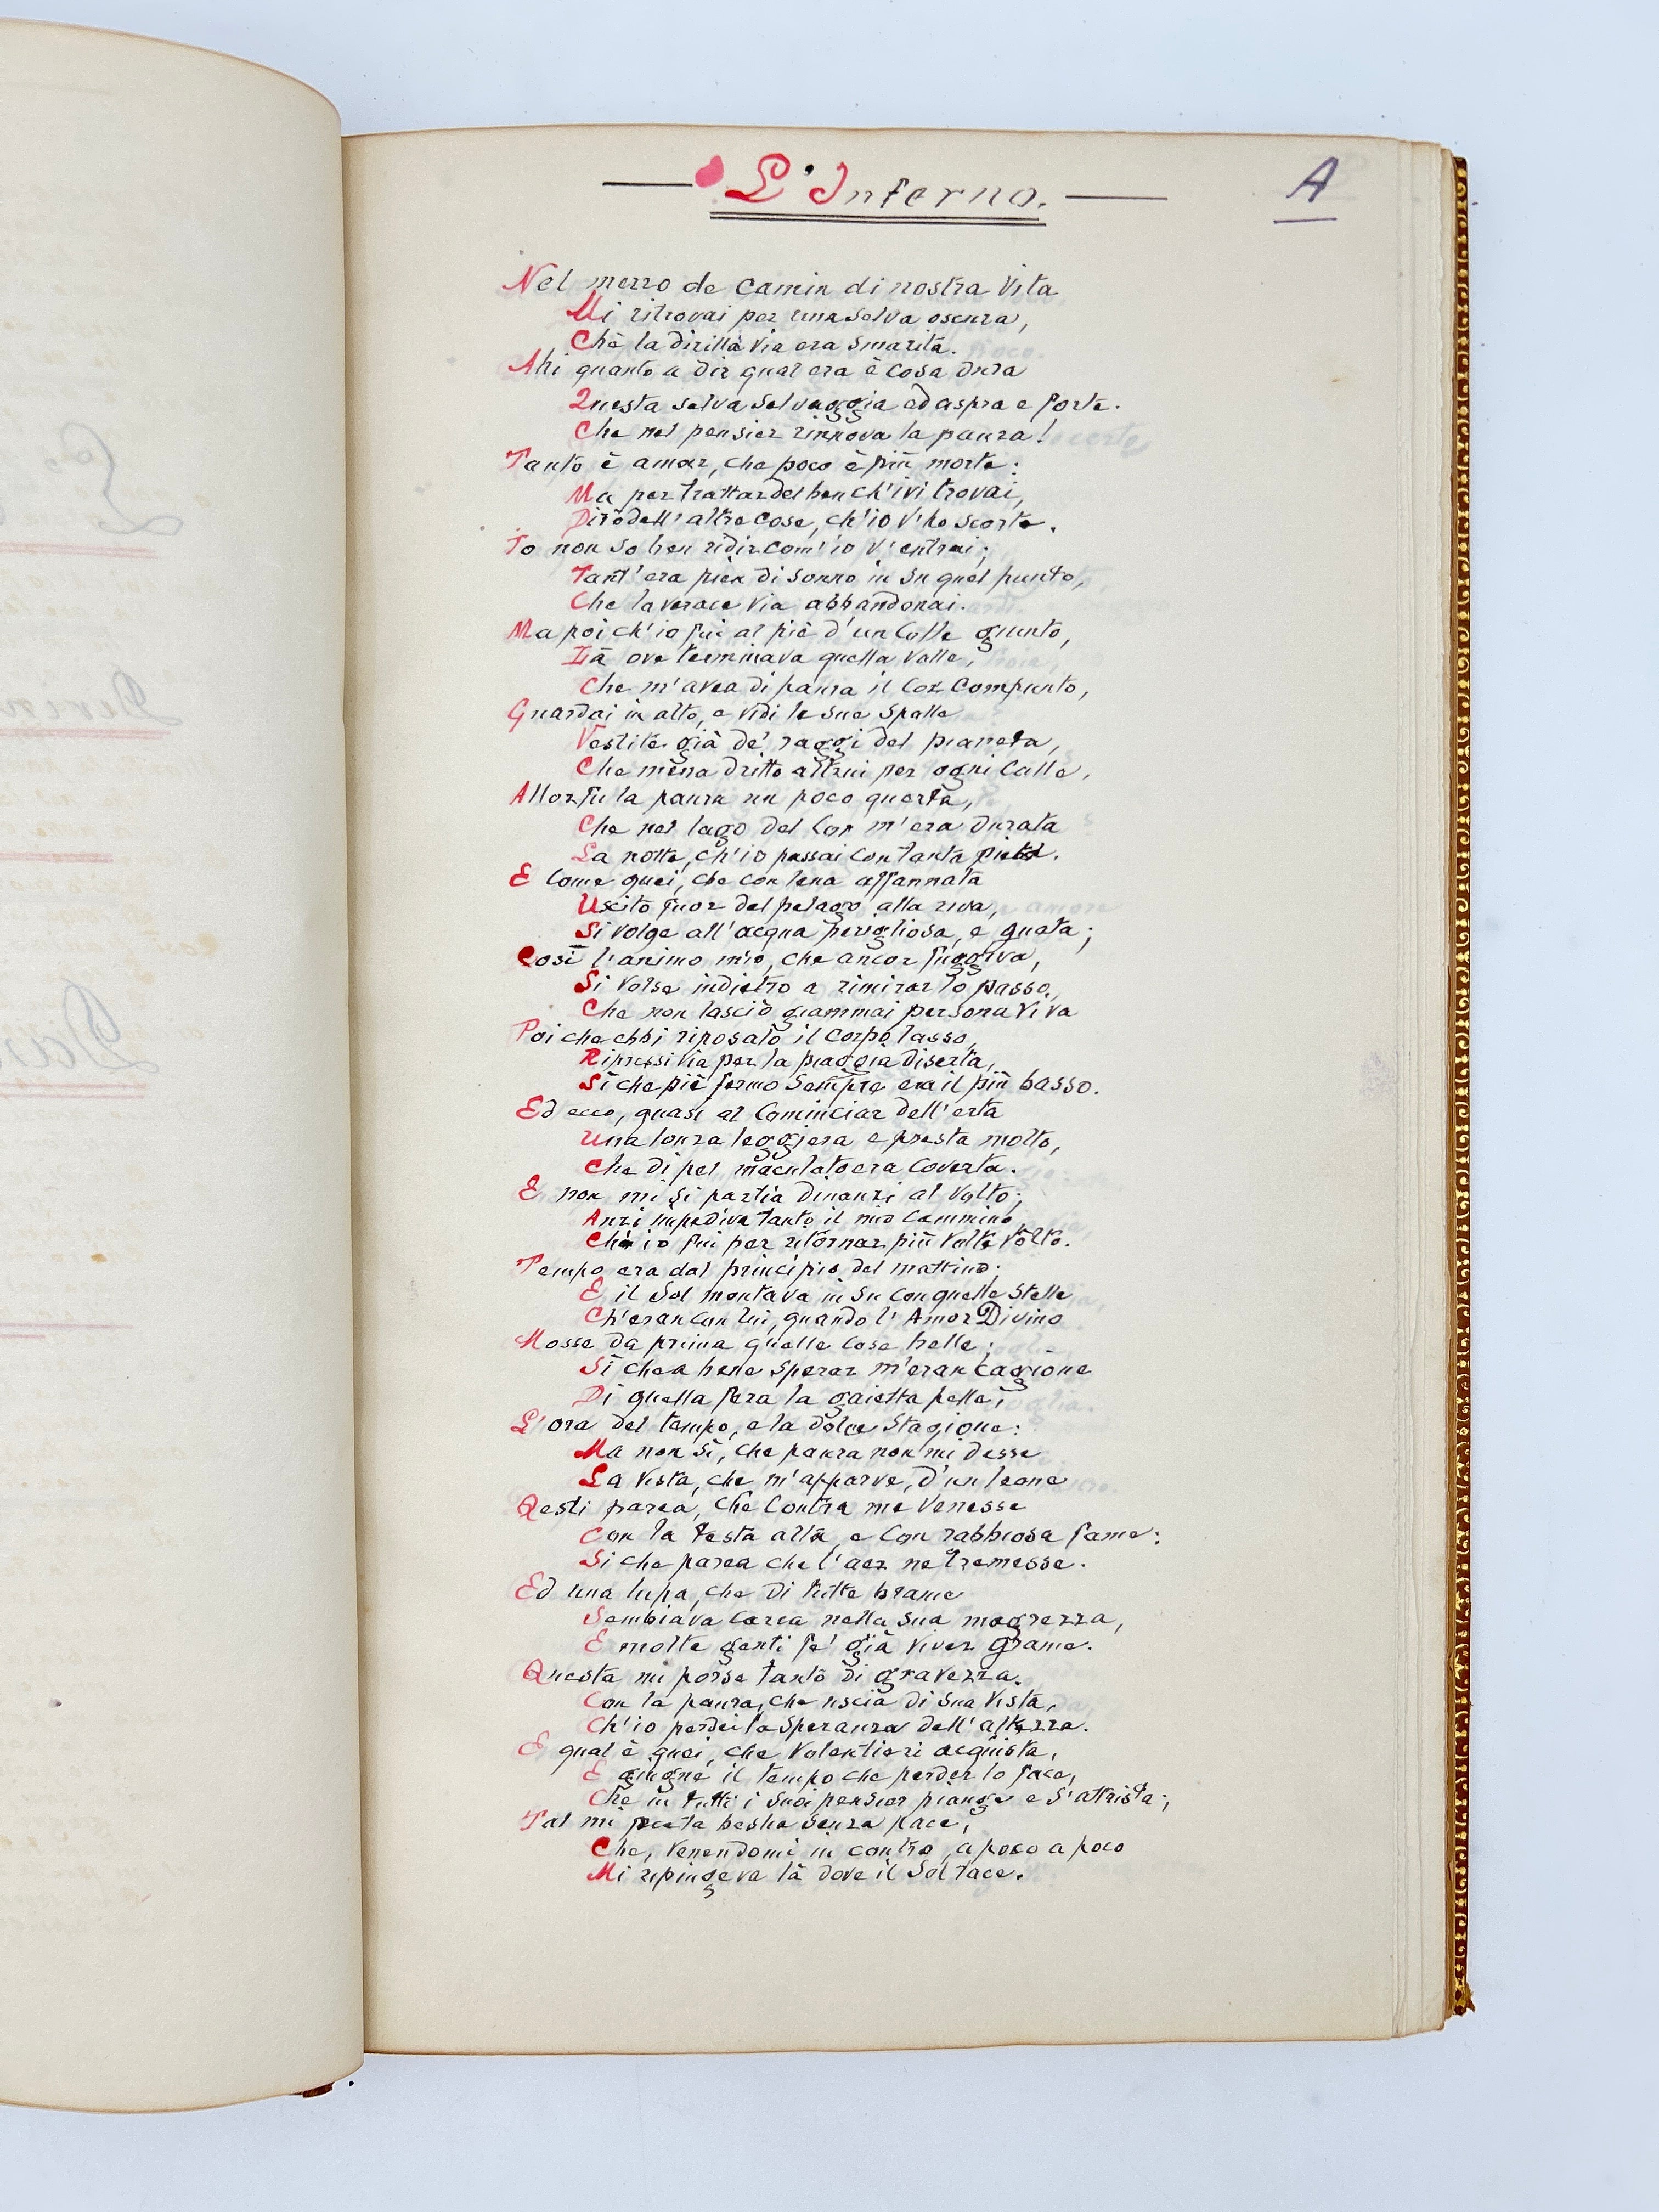 L'Inferno.
A
Nel mezzo de camin di nostra Vita
Mi ritrovai per una selva oscura,
Chè la diritta via era smarita.
Ahi quanto a dir qual era è cosa dura
Questa selva selvaggia ed aspra e forte.
Che nel pensier rinnova la paura!
Tanto è amar, che poco è più morte:
Ma per trattar del ben ch'ivi trovai,
Dirò dell'altre cose, ch'io v'ho scorte.
Io non so ben ridir com'io v'entrai;
Tant'era pien di sonno in su quel punto,
Che la verace via abbandonai.
Ma poi ch'io fui al piè d'un Colle giunto,
Là ove terminava quella Valle,
Che m'avea di paura il Cor Compunto,
Guardai in alto, e vidi le sue Spalle
Vestite già de' raggi del pianeta,
Che mena dritto altrui per ogni Calle.
Allor fu la paura un poco queta,
Che nel lago del Cor m'era durata
La notte, ch'io passai con tanta pieta.
E Come quei, che con lena affannata
Uscito fuor del pelago alla riva,
Si volge all'acqua perigliosa, e guata;
Così l'animo mio, che ancor fuggiva,
Si Volse indietro a rimirar lo passo,
Che non lasciò giammai persona Viva
Poi che ebbi riposato il corpo lasso,
Ripressi via per la piaggia diserta,
Sì che piè fermo sempre era il più basso.
Ed ecco, quasi al Cominciar dell'erta
Una lonza leggiera e presta molto,
Che di pel maculato era Coverta.
E non mi si partia dinanzi al Volto;
Anzi impediva tanto il mio Cammino
Ch'io fui per ritornar più Volte Vòlto.
Tempo era dal principio del mattino;
E il Sol montava in su con quelle Stelle
Ch'eran con lui, quando l'Amor Divino
Mosse da prima quelle Cose belle;
Sì che a bene sperar m'eran Cagione
Di quella fera la gaietta pelle,
L'ora del tempo, e la dolce Stagione:
Ma non sì, che paura non mi desse
La Vista, che m'apparve, d'un leone
Qesti parea, che Contra me Venesse
Con la testa alta, e Con rabbiosa fame:
Si che parea che l'aer ne tremesse.
Ed una lupa, che di tutte brame
Sembiava Carca nella sua magrezza,
E molte genti fe' già viver grame.
Questa mi porse tanto di gravezza
Con la paura, che uscia di sua Vista,
Ch'io perdei la speranza dell'altezza.
E qual è quei, che Volentieri acquista,
E giugne il tempo che perder lo face,
Che in tutti i suoi pensier piange e s'attrista;
Tal mi bestia senza pace,
Che, Venendomi in contro, a poco a poco
Mi ripingeva là dove il Sol tace.